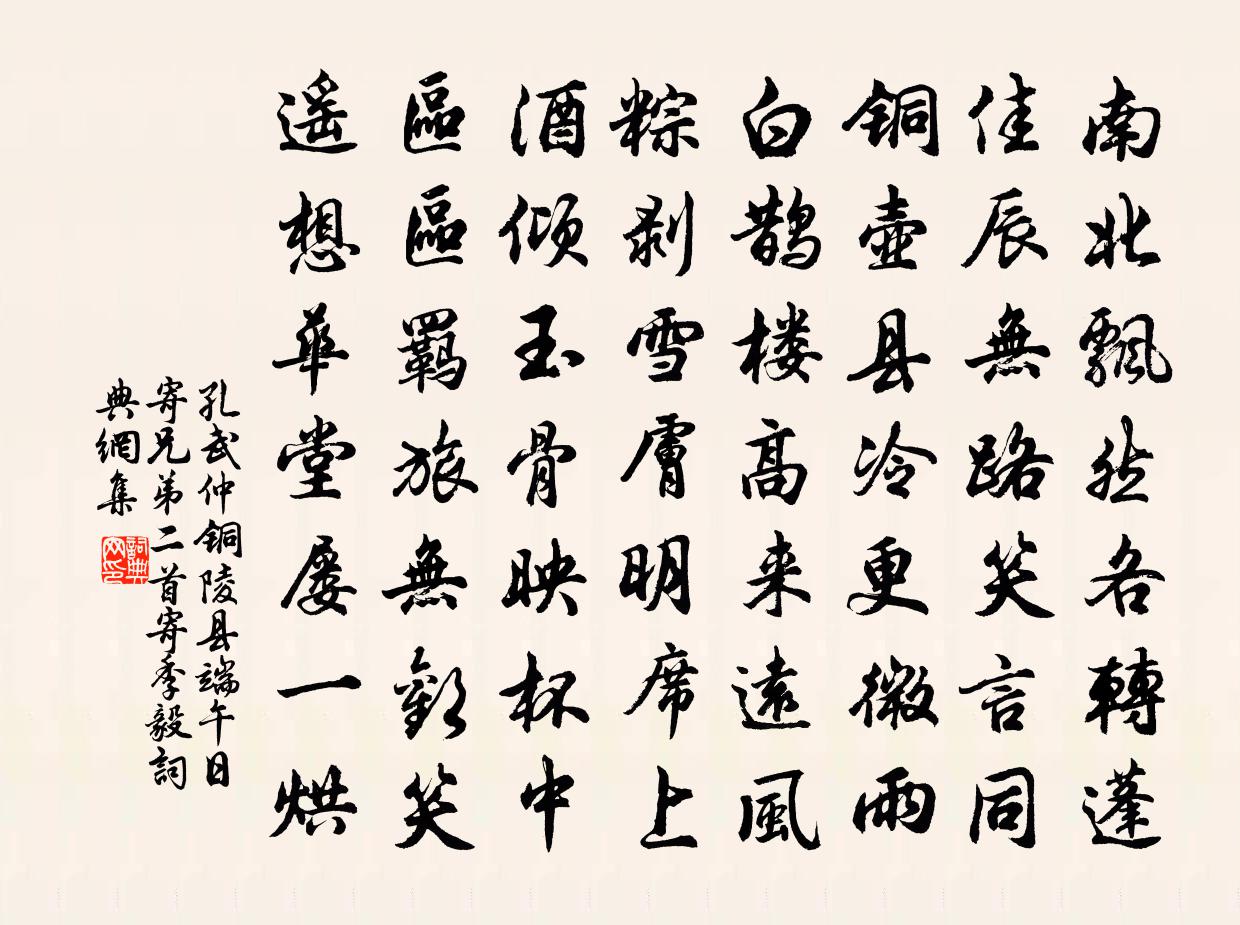 南北飄然各轉蓬
佳辰無路笑言同
铜壺县冷更微雨
白鹊楼高来遠風
粽剥雪膚明席上
酒倾玉骨映杯中
區區羈旅無歡笑
遥想華堂屡一烘
孔武仲铜陵县端午日
寄兄弟二首寄季毅詞
典網集
詞典网印